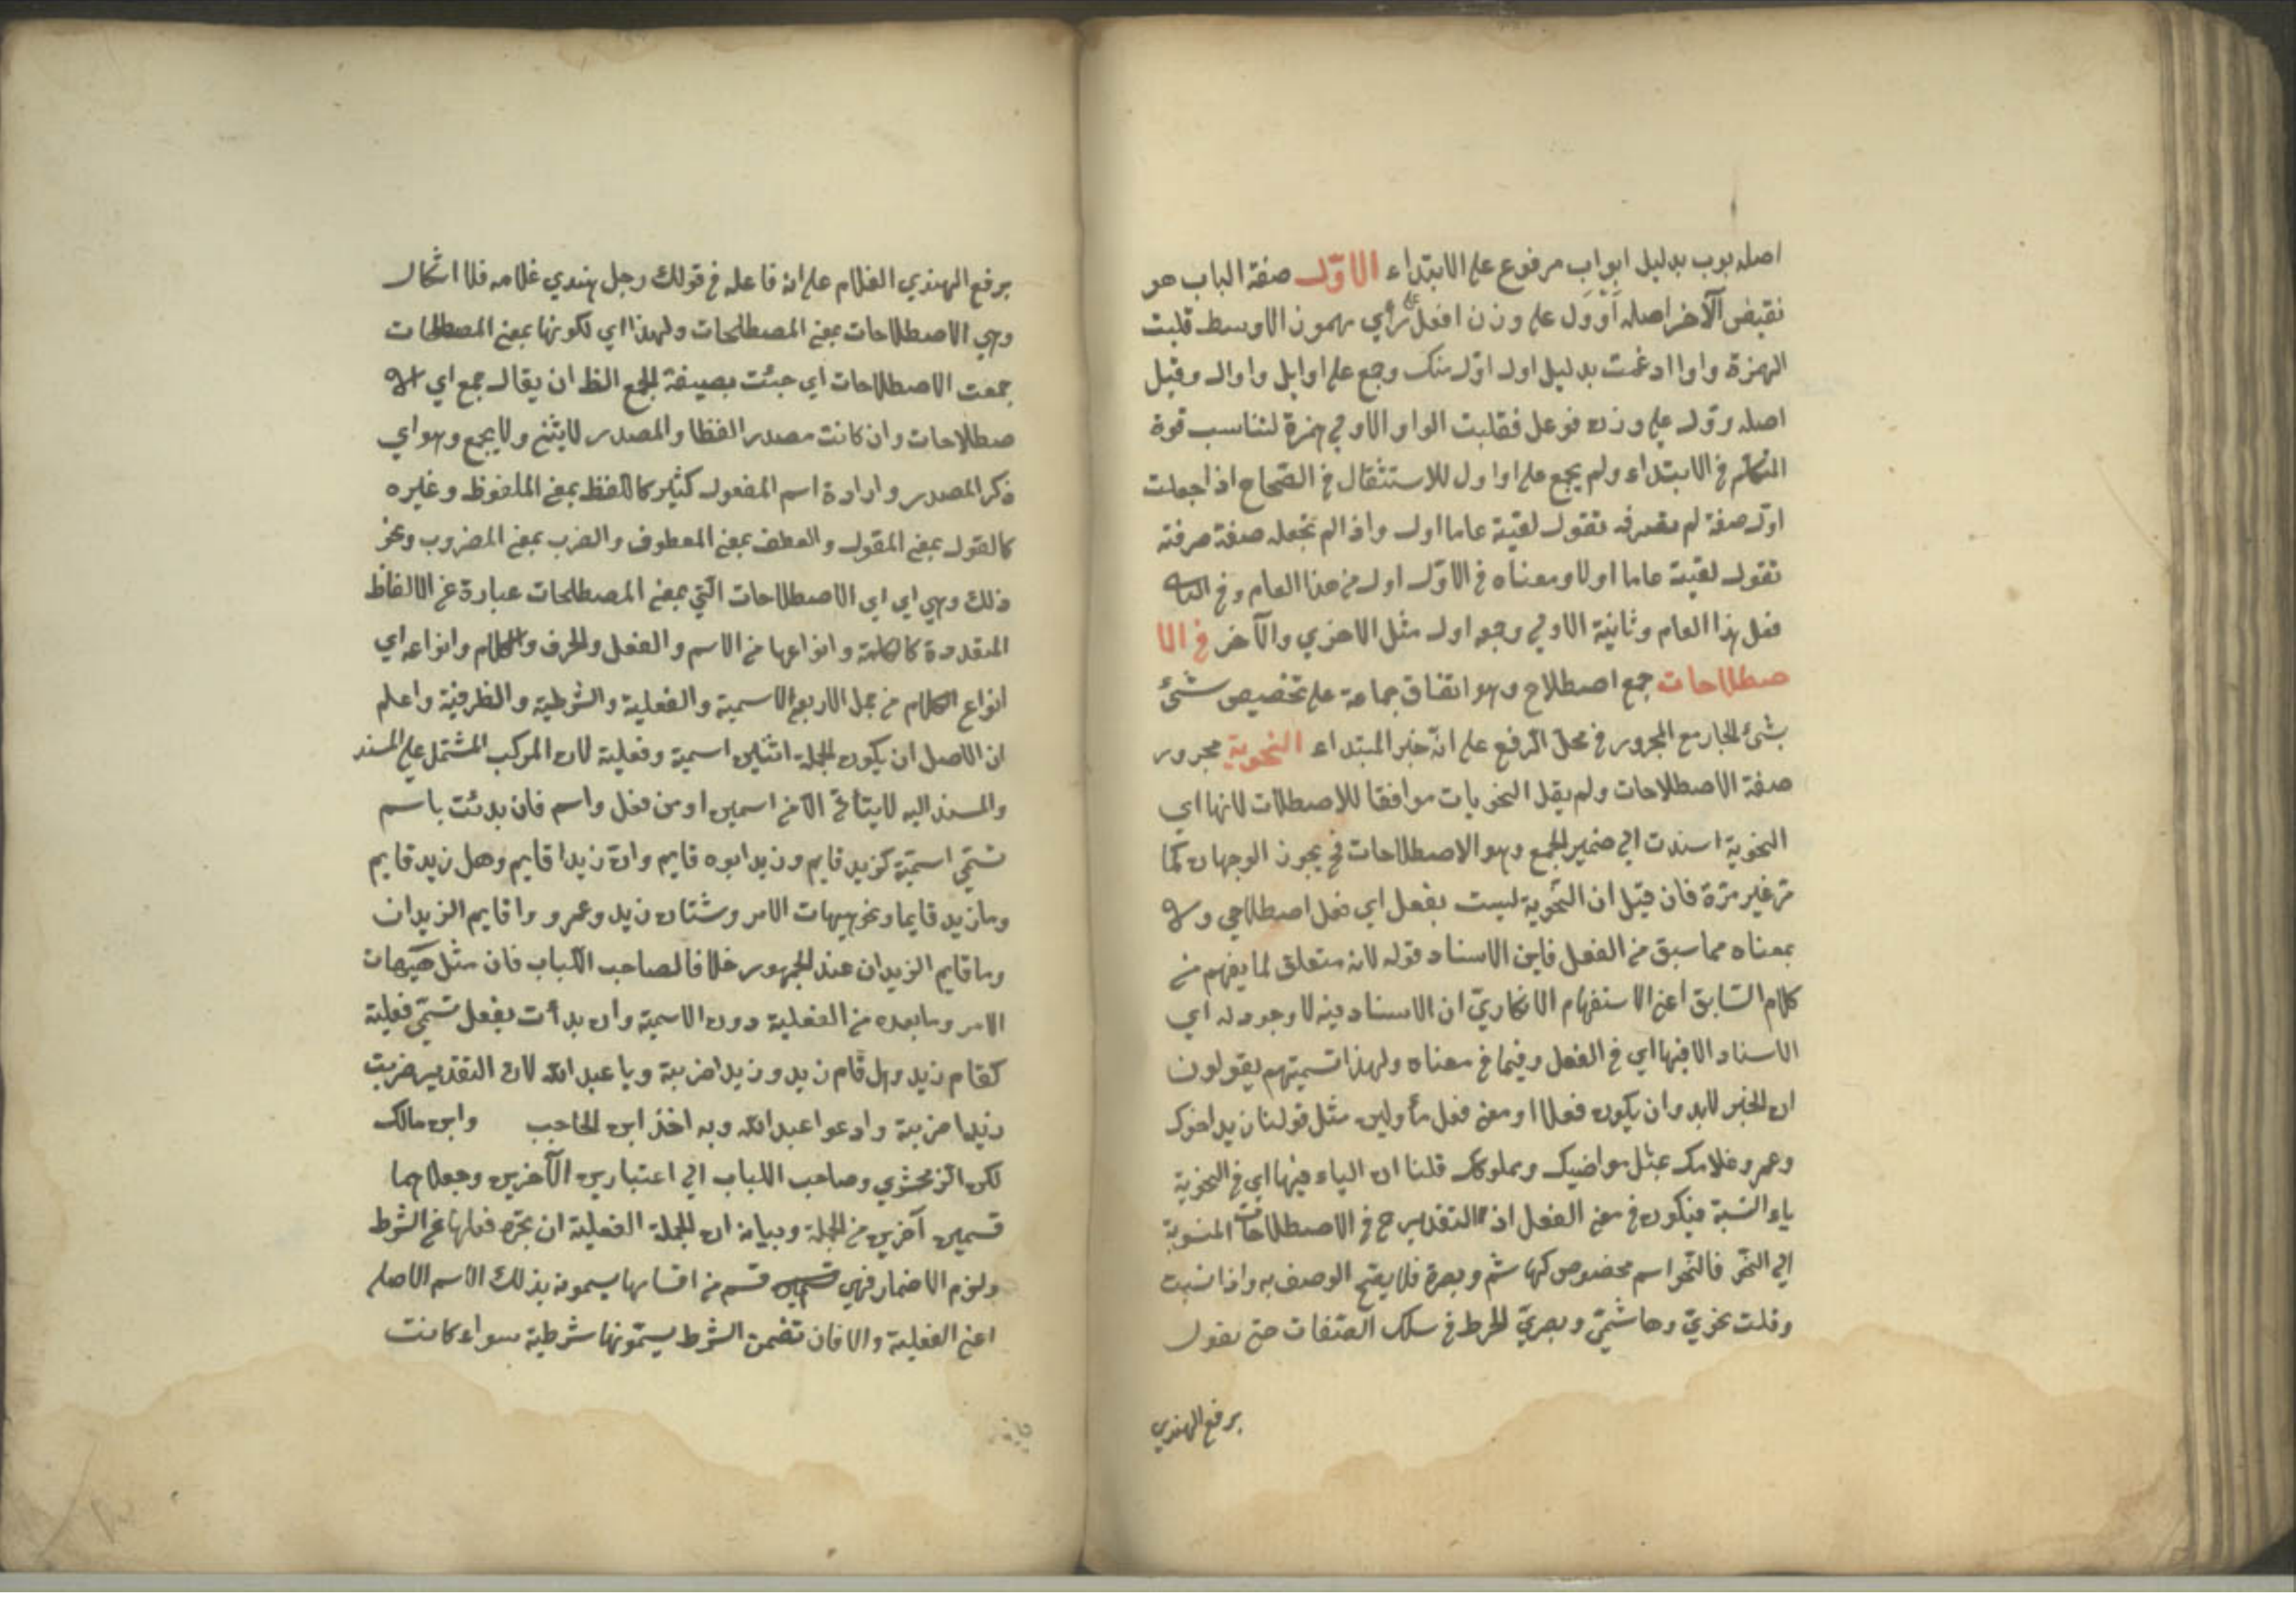 اصله بوب بدليل ابواب مرفوع على الابتداء الاوّل صفة الباب هو
نقيض الآخر اصله أَوْوَل على وزن افعل على رأي مهموز الاوسط قلبت
الهمزة واوا ادغمت بدليل اول اوّل منك وجمع على اوايل واوال وقيل
اصله ووّل على وزن فوعل فقلبت الواو الاولى همزة لتناسب قوة
المتكلم في الابتداء ولم يجمع على اواول للاستثقال في الصّحاح اذا جعلت
اوّل صفة لم تصرفه تقول لقيته عاما اول واذا لم تجعله صفة صرفته
تقول لقيته عاما اولا ومعناه في الاوّل اول من هذا العام وفي
قبل هذا العام وثانية الاولى وجمعه اول مثل الاخرى والآخر في الا
صطلاحات جمع اصطلاح وهو اتفاق جماعة على تخصيص شئ
بشئ الجار مع المجرور في محل الرفع على انّه خبر المبتداء النحوية مجرور
صفة الاصطلاحات ولم يقل النحويات موافقا للاصطلات لانها اي
النحوية اسندت الى ضمير الجمع وهو الاصطلاحات في يجوز الوجهان كما
مرّ غير مرّة فان قيل ان النّحوية ليست بفعل اي فعل اصطلاحي ولا
بمعناه مما سبق من الفعل فاين الاسناد قوله لانه متعلق لما يفهم من
كلام السّابق اعني الاستفهام الانكاريّ ان الاسناد فيه لا وجود له اي
الاسناد الا فيها اي في الفعل وفيما في معناه ولهذا تسميتهم يقولون
ان الخبر لابد وان يكون فعلا او معنى فعل مأولين مثل قولنا زيد اخوك
وعمرو غلامك بمثل مواضيك ومملوكك قلنا ان الياء فيها اي في النحوية
ياء النّسبة فيكون في معنى الفعل اذ التقدير ح في الاصطلاحات المنسوبة
الى النحو فالنّحو اسم مخصوص كهاشم وبصرة فلا يصح الوصف به واذا نسبت
وقلت نحويّ وهاشميّ وبصريّ انخرط في سلك الصّفات حتى تقول
برفع الهندي
برفع الهندي الغلام على انه فاعله في قولك رجل هندي غلامه فلا اشكال
وهي الاصطلاحات بمعنى المصطلحات ولهذا اي لكونها بمعنى المصطلحات
جمعت الاصطلاحات اي جيئت بصيغة الجمع الظ ان يقال جمع اي الا
صطلاحات وان كانت مصدر الفظا والمصدر لا يثنى ولا يجمع وهو اي
ذكر المصدر وارادة اسم المفعول كثير كاللفظ بمعنى الملفوظ وغيره
كالقول بمعنى المقول والعطف بمعنى المعطوف والضرب بمعنى المضروب ونحو
ذلك وهي اي اي الاصطلاحات الّتي بمعنى المصطلحات عبارة عن الالفاظ
المتقدمة كالكلمة وانواعها من الاسم والفعل والحرف والكلام وانواعه اي
انواع الكلام من جمل الاربع الاسمية والفعلية والشرطية والظرفية واعلم
ان الاصل ان يكون الجملة اثنين اسمية وفعلية لان المركب المشتمل على المسند
والمسند اليه لا يتأتى الا من اسمين او من فعل واسم فان بدئت باسم
تسمّى اسميّة كزيد قايم وزيد ابوه قايم وانّ زيدا قايم وهل زيد قايم
وما زيد قايما ونحو هيهات الامر وشتان زيد وعمرو واقايم الزيدان
وما قايم الزيدان عند الجمهور خلافا لصاحب اللباب فان مثل هيهات
الامر وما بعده من الفعلية دون الاسمية وان بدأت بفعل تسمّى فعلية
كقام زيد وهل قام زيد وزيدا ضربته ويا عبد الله لان التقدير ضربت
زيدا ضربته وادعوا عبد الله وبه اخذ ابن الحاجب وابن مالك
لكن الزمخشري وصاحب اللباب الى اعتبارين الآخرين وجعلاهما
قسمين آخرين من الجملة وبيانه ان الجملة الفعلية ان تجرّد فعلها عن الشرط
ولزم الاضمار فهي قسم من اقسامها يسمونه بذلك الاسم الاصلي
اعني الفعلية والا فان تضمن الشرط يسمّونها شرطية سواء كانت